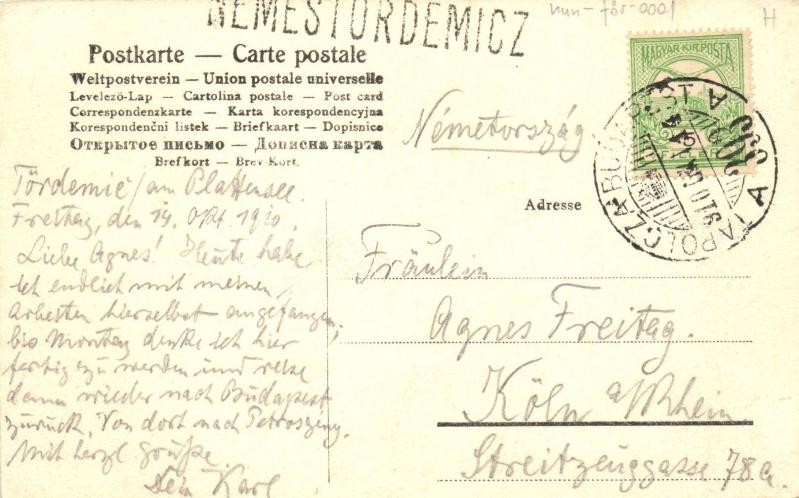 NEMESTÖRDEMICZ
nun-tör-0001
H
Postkarte — Carte postale
Weltpostverein — Union postale universelle
Levelező-Lap — Cartolina postale — Post card
Correspondenzkarte — Karta korespondencyjna
Korespondenční listek — Briefkaart — Dopisnica
Открытое письмо — Дописна карта
Brefkort — Brev-Kort.
MAGYAR KIR. POSTA
BUDAPEST
TAPOLCZA
910
Németország
Adresse
Tördemic/am Plattensee.
Freitag, den 14. Okt. 1910.
Liebe Agnes! Heute habe
ich endlich mit meinen
Arbeiten hierselbst angefangen,
bis Montag denke ich hier
fertig zu werden und reise
dann wieder nach Budapest
zurück. Von dort nach Petroszeny.
Mit herzl Grüße
Dein Karl
Fräulein
Agnes Freitag.
Köln a/Rhein
Streitzeuggasse 78a.